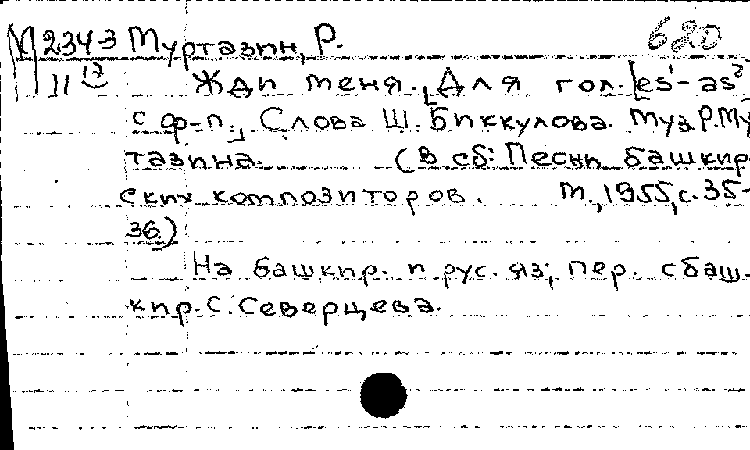 М 234-3 Муртазин, Р. 620
II 17 Жди меня. [Для гол. [es¹-as²
с ф-п.], Слова Ш. Биккулова. Муз. Р. Му
тазина. (В сб: Песни башкир
ских композиторов. М., 1955, с. 35-
36)
На башкир. и рус. яз; пер. с баш-
кир. С. Северцева.